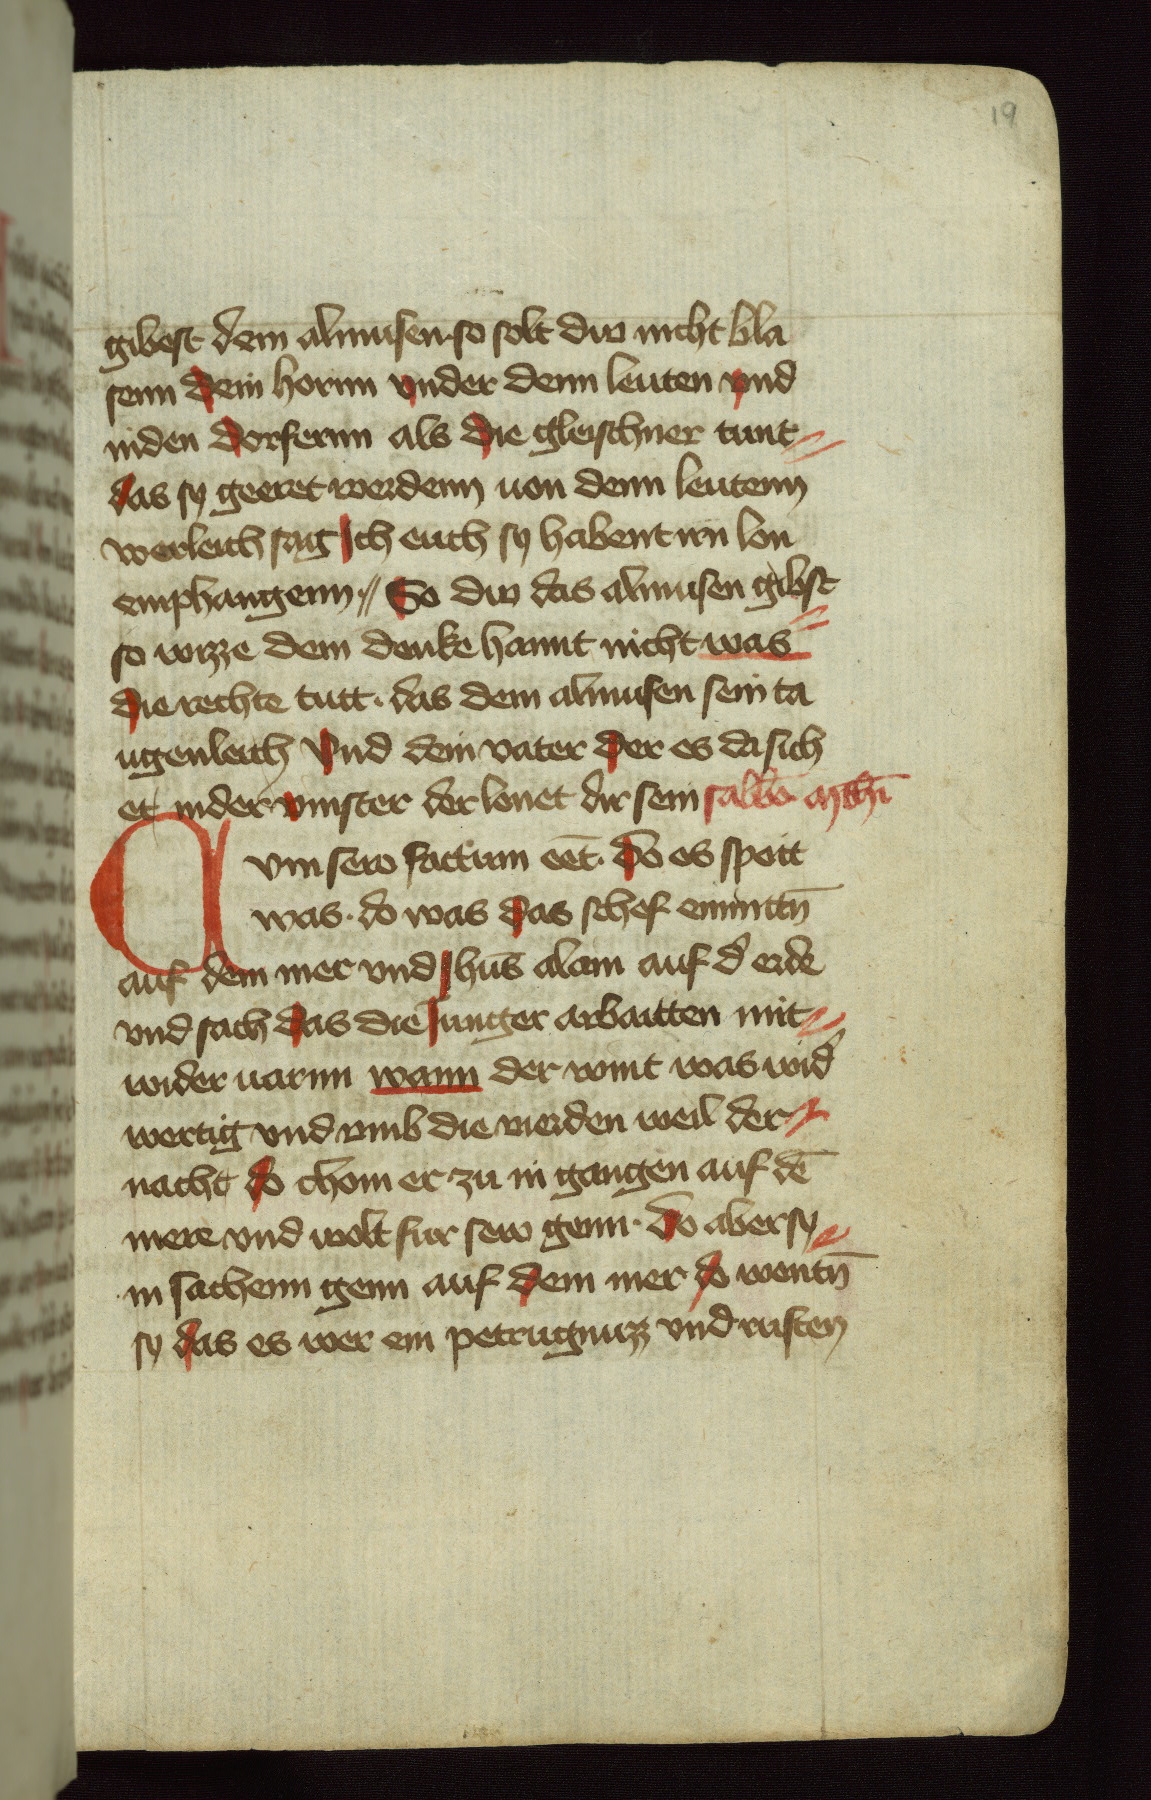 19
gibest dein almusen · so solt duo nicht bla
senn dein hornn vnder denn leuten vnd
inden dorfernn als die gleischner tunt
das sy geeret werdenn uon denn leutenn
werleich sag Ich euch sy habent irn lon
emphangenn // So duo das almusen gibst
so wizze dein denke hannt nicht was
die rechte tutt · das dein almusen sein ta
ugenleich Vnd dein vater der es da sich
et in der vinster der lonet dir sein
vm sero factum eēt · Do es spett
was · do was das schef enmittn̄
auf dem mer vnd Jhūs alain auf d̄ erde
vnd sach das die Junger arbaitten mit
wider uarnn wann der wint was wid̄
wertig vnd vmb die vierden weil der
nacht do chom er zu in gangen auf dē
mere vnd wolt fur sew genn · Do aber sy
in sachenn genn auf dem mer do wentn̄
sy das es wer ein petrugnuzz vnd rufften